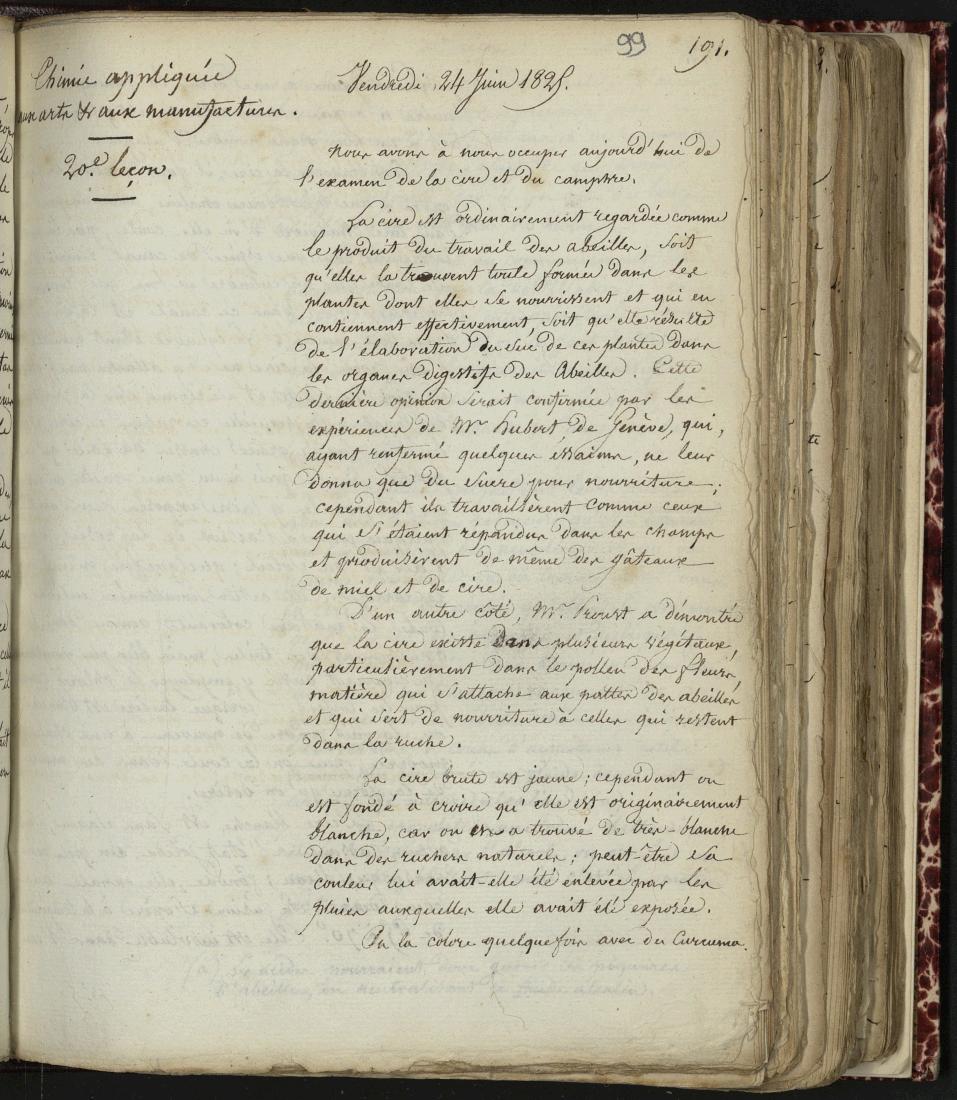 99
191.
Chimie appliquée
aux arts & aux manufactures.
20.e leçon.
Vendredi 24 Juin 1825.
Nous avons à nous occuper aujourd'hui de
l'examen de la cire et du camphre.
La cire est ordinairement regardée comme
le produit du travail des abeilles, soit
qu'elles la trouvent toute formée dans les
plantes dont elles se nourrissent et qui en
contiennent effectivement, soit qu'elle résulte
de l'élaboration du suc de ces plantes dans
les organes digestifs des Abeilles. Cette
dernière opinion serait confirmée par les
expériences de Mr. Hubert de Genève, qui,
ayant renfermé quelques essaims, ne leur
donna que du sucre pour nourriture ;
cependant ils travaillèrent comme ceux
qui s'étaient répandus dans les champs
et produisèrent de même des gâteaux
de miel et de cire.
D'un autre côté, Mr. Proust a démontré
que la cire existe dans plusieurs végétaux,
particulièrement dans le pollen des fleurs,
matière qui s'attache aux pattes des abeilles
et qui sert de nourriture à celles qui restent
dans la ruche.
La cire brute est jaune ; cependant on
est fondé à croire qu'elle est originairement
blanche, car on en a trouvé de très-blanche
dans des ruchers naturels ; peut-être sa
couleur lui avait-elle été enlevée par les
pluies auxquelles elle avait été exposée.
On la colore quelquefois avec du Curcuma.